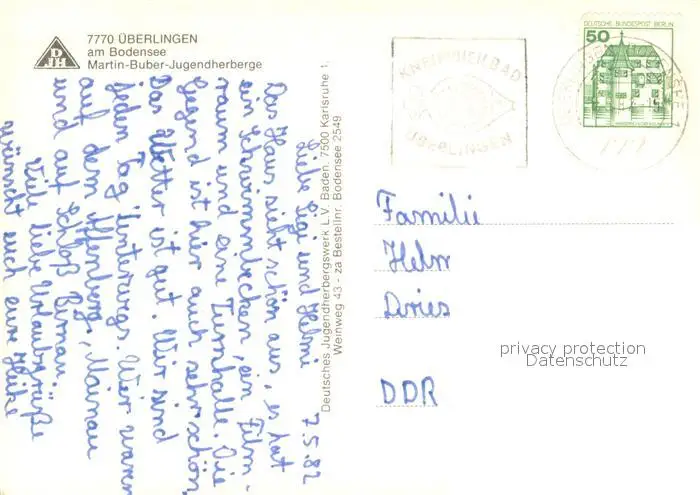 7770 ÜBERLINGEN
am Bodensee
Martin-Buber-Jugendherberge
DJH
Liebe Sigi und Helmi 7.5.82
Das Haus sieht schön aus, es hat
ein Schwimmbecken, ein Film-
raum und eine Turnhalle. Die
Gegend ist hier auch sehr schön.
Das Wetter ist gut. Wir sind
jeden Tag unterwegs. Wir waren
auf dem Affenberg, Mainau
und auf Schloß Birnau.
Viele liebe Urlaubsgrüße
wünscht euch eure Heike
Deutsches Jugendherbergswerk L.V. Baden, 7500 Karlsruhe 1,
Weinweg 43 - za Bestellnr. Bodensee 2549
KNEIPPHEILBAD
ÜBERLINGEN
DEUTSCHE BUNDESPOST BERLIN
50
Familie
Helm
Dries
DDR
privacy protection
Datenschutz